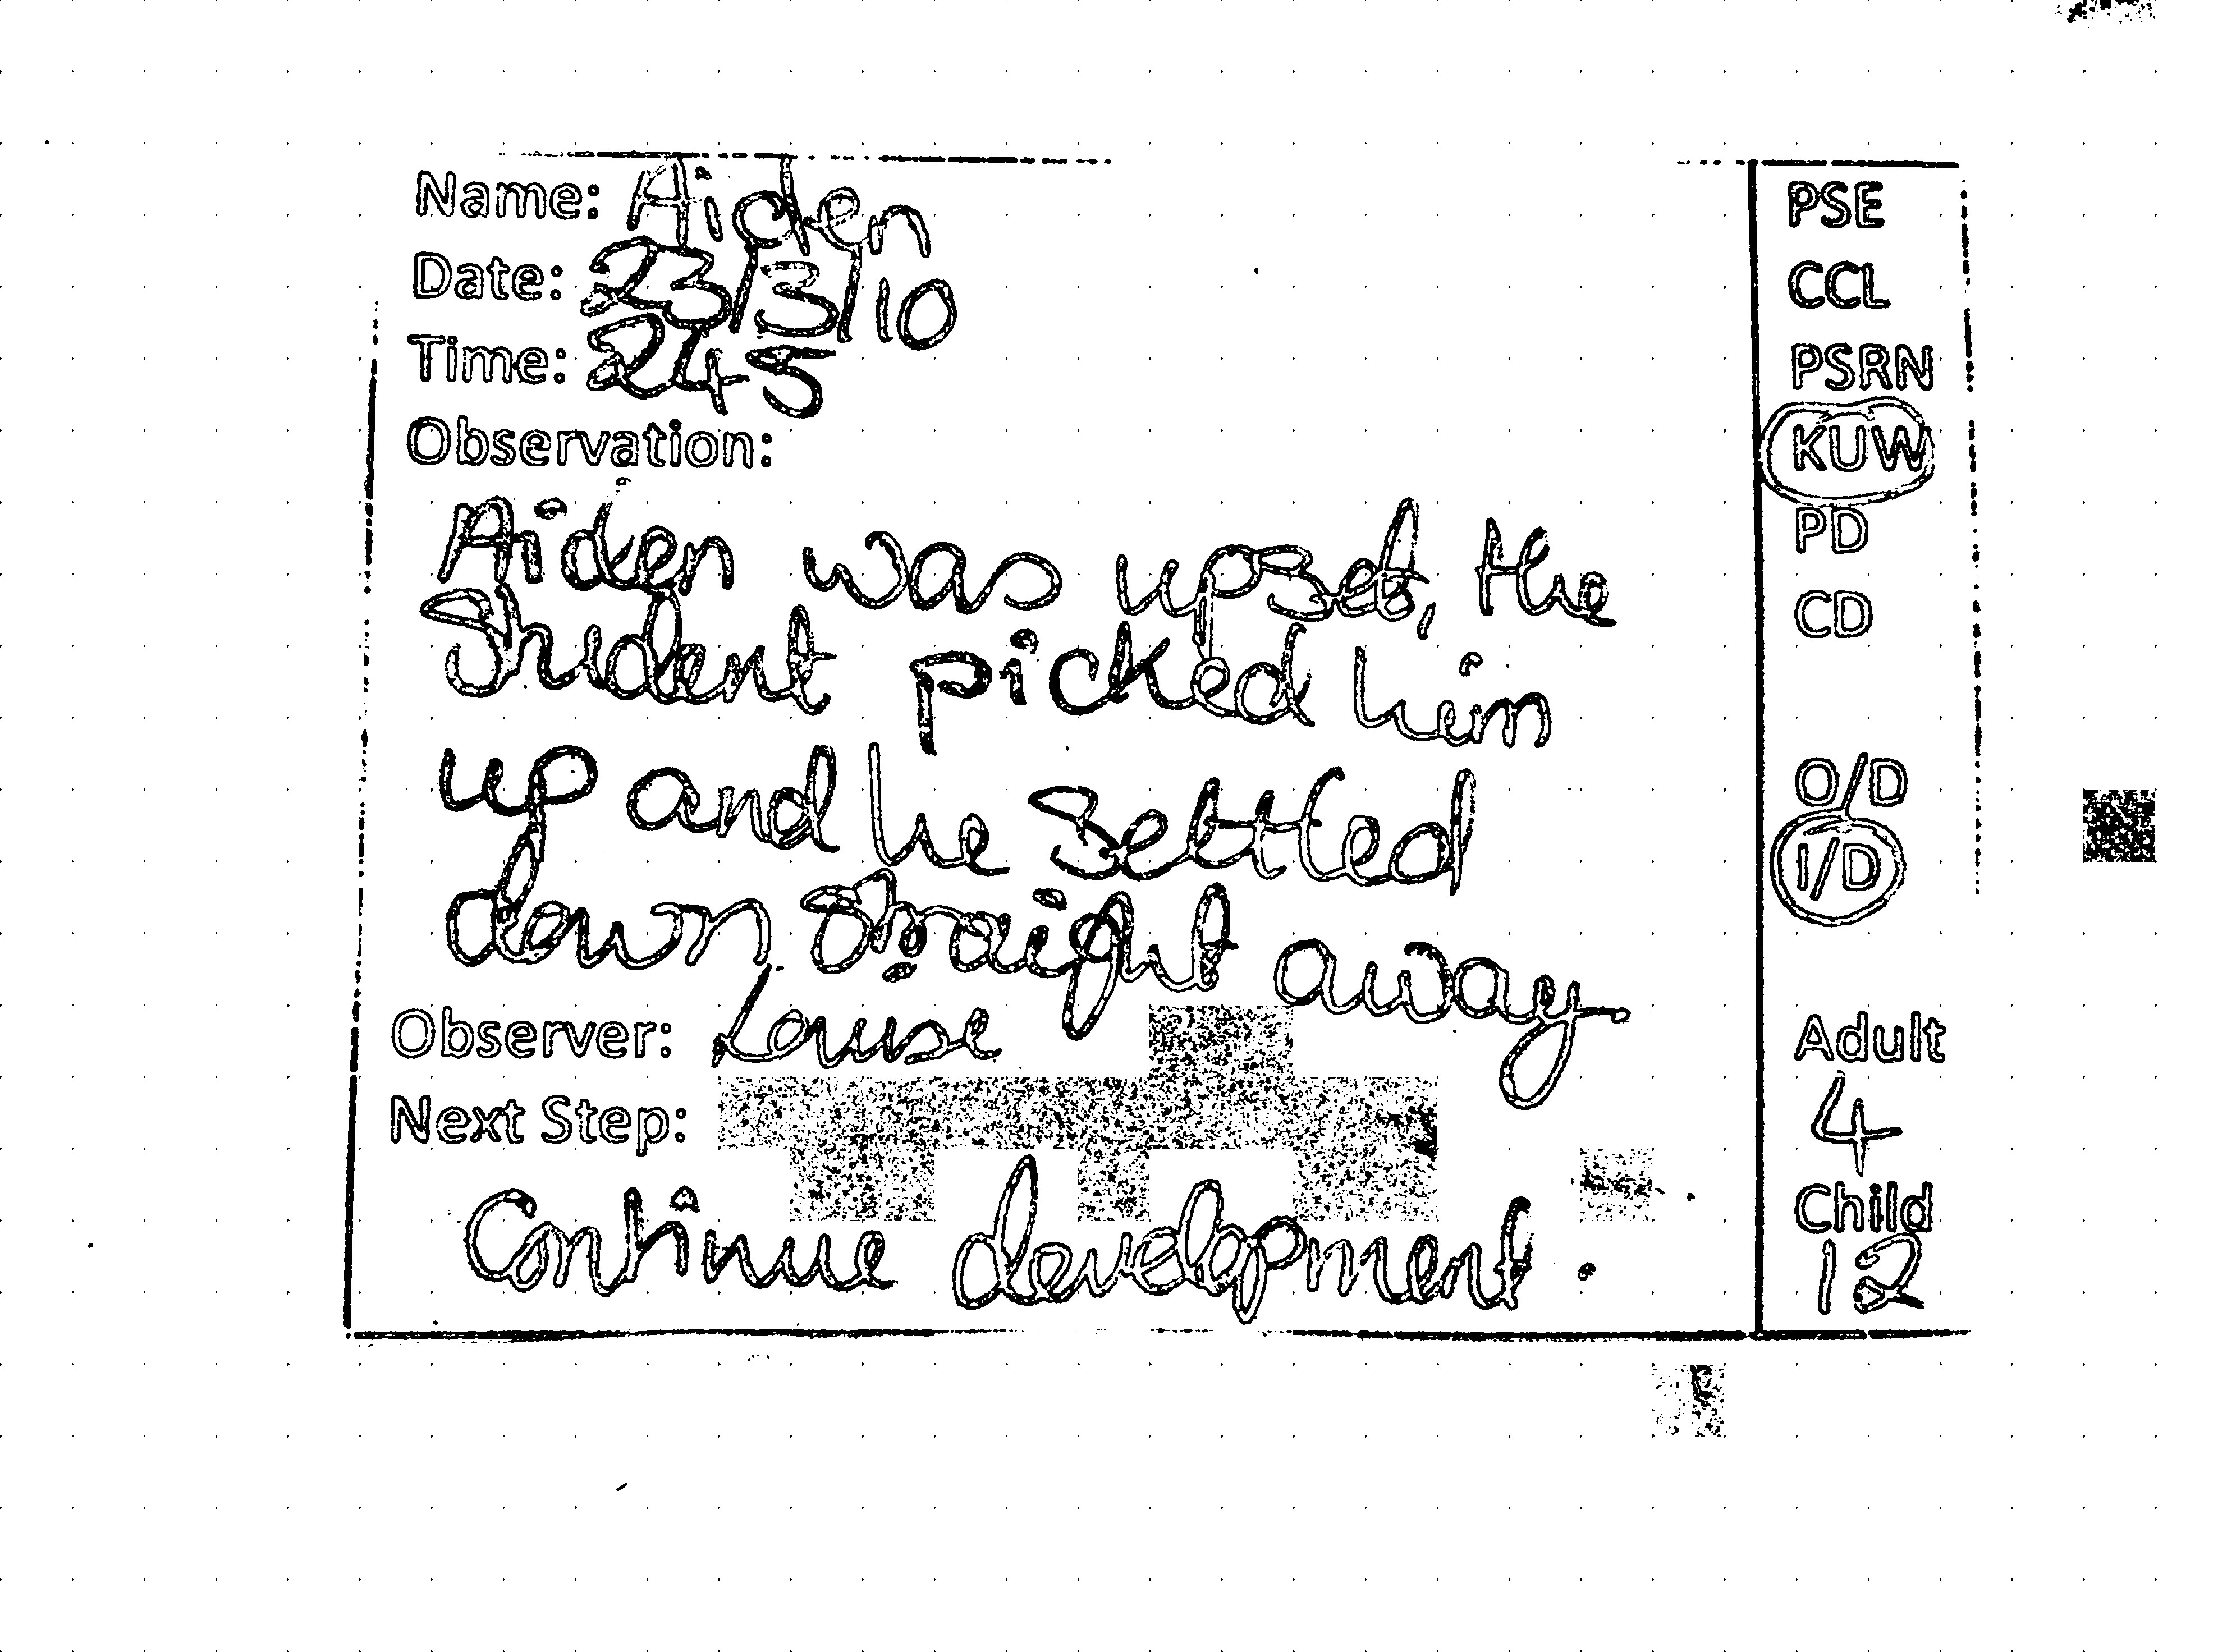 Name: Aiden
Date: 23/3/10
Time: 245
Observation:
Aiden was upset, the
Student picked him
up and he settled
down straight away
Observer: Louise
Next Step:
Continue development.
PSE
CCL
PSRN
KUW
PD
CD
O/D
I/D
Adult
4
Child
12